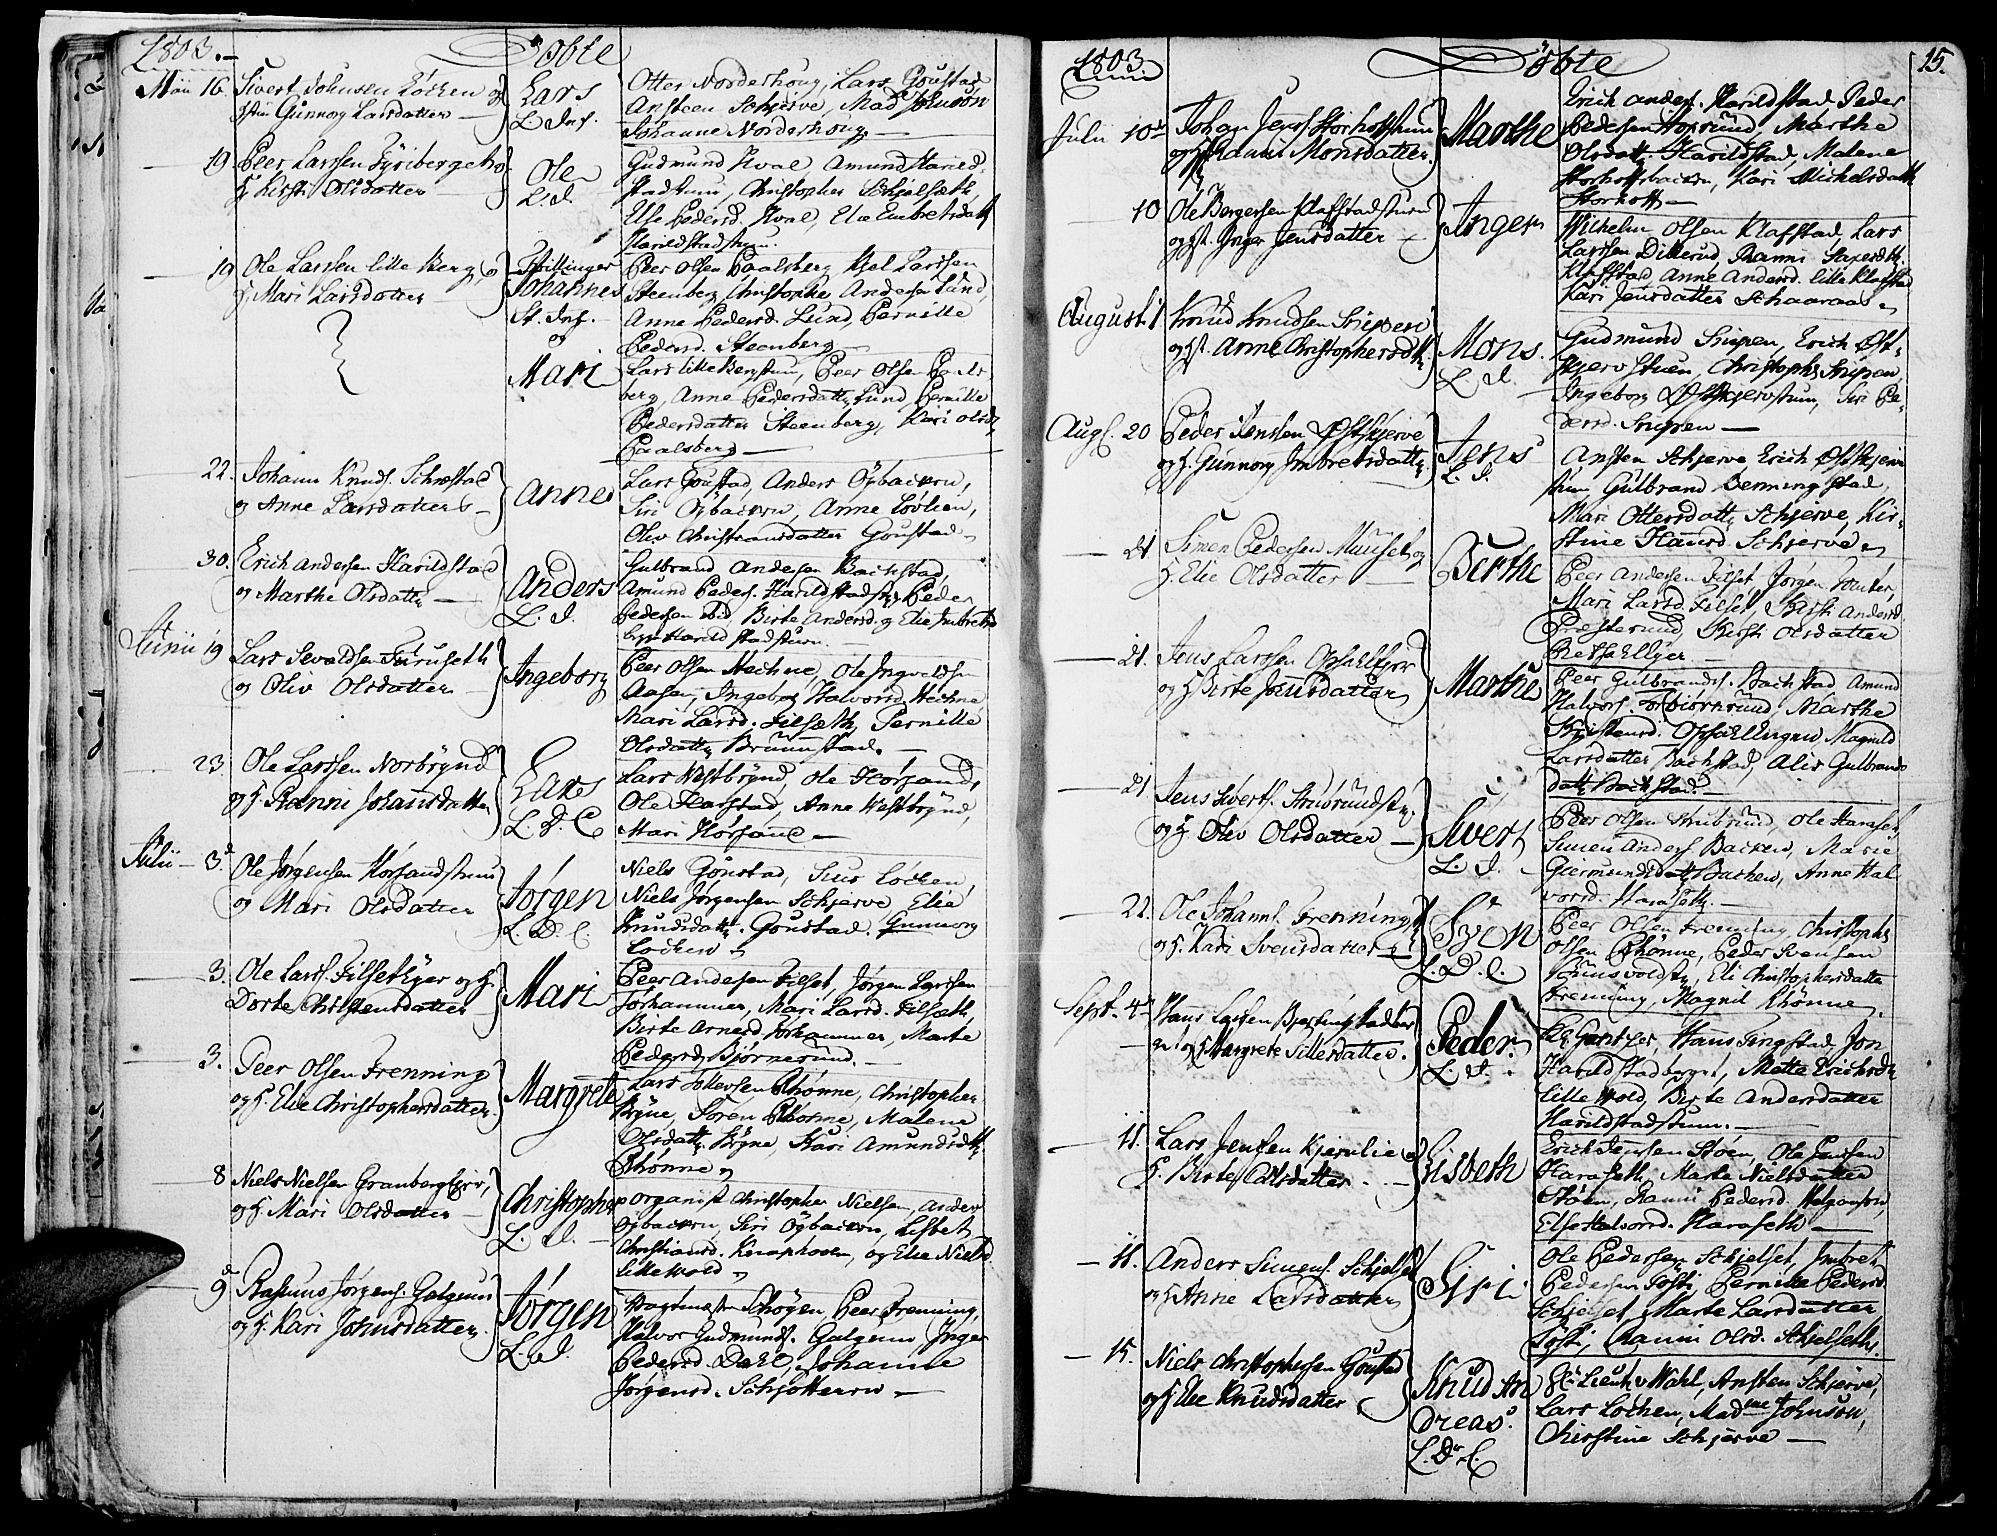 1803.
Döbte
Maii 16. Sivert Johnsen Löcken og
Hstr Gunnorg Larsdatter
Lars
L. Inf.
Otter Norderhoug, Lars Goustad
Ansteen Schjerve, Mad Johnson
Johanne Norderhoug
19 Peer Larssen Fyriberget og
H. Kirsti Olsdatter
Ole
L. I.
Gudmund Hval Amund Harild-
stadstuen, Christopher Schielseth
Else Pedersd. Hval, Elie Embretsdatt
Harildstadstuen.
19 Ole Larssen lille Berg, og
H. Mari Larsdatter
Tvillinger
Johannes
St. Inf.
og
Mari
Peer Olsen Paalsberg Kjel Larssen
Steenberg Christopher Andersen Lund,
Anne Pedersd. Lund, Pernille
Pedersd. Steenberg
Lars lille Bergstuen, Peer Olsen Paals
berg, Anne Pedersdatt Lund Pernille
Pedersdatter Steenberg, Kari Olsd.
Paalsberg
22. Johan Knuds. Schrestad
og Anne Larsdatter
Anne
Lars Goustad, Anders Öÿbacken,
Siri Öÿbacken, Anne Lövlien,
Oliv Christiansdatter Goustad
30. Erich Andersen Harildstad
og Marthe Olsdattr
Anders
L. I.
Gulbrand Andersen Bachstad,
Amund Peders. Harildstadst Peder
Pedersen ibid, Birte Andersd. og Elie Imbretsd
begge Harildstadstuen.
Junii 19 Lars Sevaldsen Furuseth
og Oliv Olsdatter
Ingeborg
Peer Olsen Hechne, Ole Ingvaldsen
Aasen, Ingeborg Halvorsd Hechne,
Mari Larsd. Filseth, Pernille
Olsdattr Bruunstad.
23 Ole Larssen Norbrÿnd
og H. Ranni Johansdatter
Lars
L. D. C
Lars Vestbrÿnd, Ole Horsand,
Ole Harstad, Anne Vestbrÿnd,
Mari Horsand
Julii 3d Ole Jörgensen Horsandstuen
og Mari Olsdatter
Jörgen
L. D. C.
Niels Goustad, Siver Löcken,
Niels Jörgensen Schjerve Elie
Knudsdattr. Goustad. Gunnorg
Löcken
3. Ole Larss. Filset Eÿer og H.
Dorte Christensdatter
Mari
Peer Andersen Filset, Jörgen Larssen
Torhammer, Mari Larsd. Filseth,
Birte Arnesd Torhammer, Marte
Pedersd Björnerund.
3. Peer Olsen Frenning
og H. Elie Christophersdatter
Margrete
Lars Tollevsen Rhönne, Christopher
Brÿne, Sören Rhönne, Malene
Olsdattr Brÿne, Kari Amundsdtt
Rhönne
8 Niels Nielsen Granberg Eÿer,
og H. Mari Olsdatter
Christopher
L. I.
organist Christopher Nielsen, Anders
Öÿbacken, Siri Öÿbacken, Lisbet
Christiansd. Knaphoven, og Elie Nielsd
lille Wold
9d Rasmus Jörgens. Galgum
og H. Kari Johnsdatter
Jörgen
L. I.
Vagtmester Schöÿen Peer Frenning
Halvor Gudmunds. Galgum Inger
Pedersd. Dahl, Johanne
Jörgensd. Schjötteren
1803
Döbte
15.
Julii 10de Johan Jenss Storhofstuen
og H. Ranni Monsdatter.
Marthe
Erich Anders. Harildstad Peder
Pedersen Hoprund, Marthe
Olsdatt Harildstad Malene
Storhofsbacken, Kari Michelsdatt
Storhoff
10 Ole Bergersen Klafstadstuen
og Hst. Inger Jensdatter
Inger
Wilhelm Olsen Klafstad Lars
Larssen Dillerud, Ranni Saxesdtt.
Klafstad Anne Andersd. lille Klafstad
Kari Jensdatter Schaaraas
Augusti 1 Knud Knudsen Snipen
og Hst. Anne Christophersdtt
Mons.
L. I.
Gudmund Snipen, Erich Öst-
skjerv Stuen, Christopher Snipen
Ingeborg Östskjervstuen, Siri Pe-
dersd. Snipen
Augs. 20 Peder Jenssen Östskjerve
og H. Gunnorg Imbretsdattr.
Jens
L. I.
Ansten Schjerve Erich Östskjerv
stuen, Gulbrand Benningstad,
Mari Ottersdattr Schjerve, Kir-
stine Hansd Schjerve
21 Simen Pedersen Muuset og
H. Elie Olsdatter
Berthe
Peer Andersen Filset, Jörgen
Mari Larsd. Filset, Kirsti Andersd
Præsterud Kirsti Olsdatter
21. Jens Larssen Opsal Eÿer
og H. Birte Jonsdatter
Marthe
Peer Gulbrands. Bachstad Amund
Halvors. Torbiörnrund, Marthe
Christensd. Opsal Eÿer Magnild
Larsdatter Bachstad, Aliv Gulbrands
dattr Bachstad.
21 Jens Sivertss. Strubrundst.
og H. Oliv Olsdatter
Sivert
L. I.
Peer Olsen Strubrund, Ole Haraset,
Simen Anders. Backen, Marie
Giermundsdatt Backen, Anne Hal
vorsd. Haraseth.
22. Ole Johanns. Frenning
og H. Kari Svensdatter
Sven
L. D. C.
Peer Olsen Frenning Christopher
Olsen Rhönne, Peder Svensen
Eli Christophersdatter
Frenning, Magnil Rhönne.
Sept. 4 Hans Larsen
og H. Margrete Sillesdatter.
Peder
L. I.
Hans Tingstad Jon
Harildstadberget, Mette Erichsdtr
lille Wold, Birte Andersdatter
Harildstadstuen.
11. Lars Jensen Kjernlie og
H. Birte Olsdatter.
Lisbeth
Erich Jenssen Stöen, Ole Jenssen
Haraseth, Marte Nielsdatter
Stöen, Ranni Pedersd.
Else Halvorsd. Haraseth
11. Anders Simens. Schjelset
og H Anne Larsdatter
Sissi
Ole Pedersen Schjelset, Imbret
Pedersen Josti, Pernille Pedersd
Schjelset, Marte Larsdatter
Josti, Ranni Olsd. Schjelseth.
15. Niels Christophersen Goustad
og H Elie Knudsdatter
Knud An
dreas.
L. Dr. C.
Hr Lieutn Wahl, Ansten Schjerve,
Lars Löcken, Madme Johnson,
Christine Schjerve